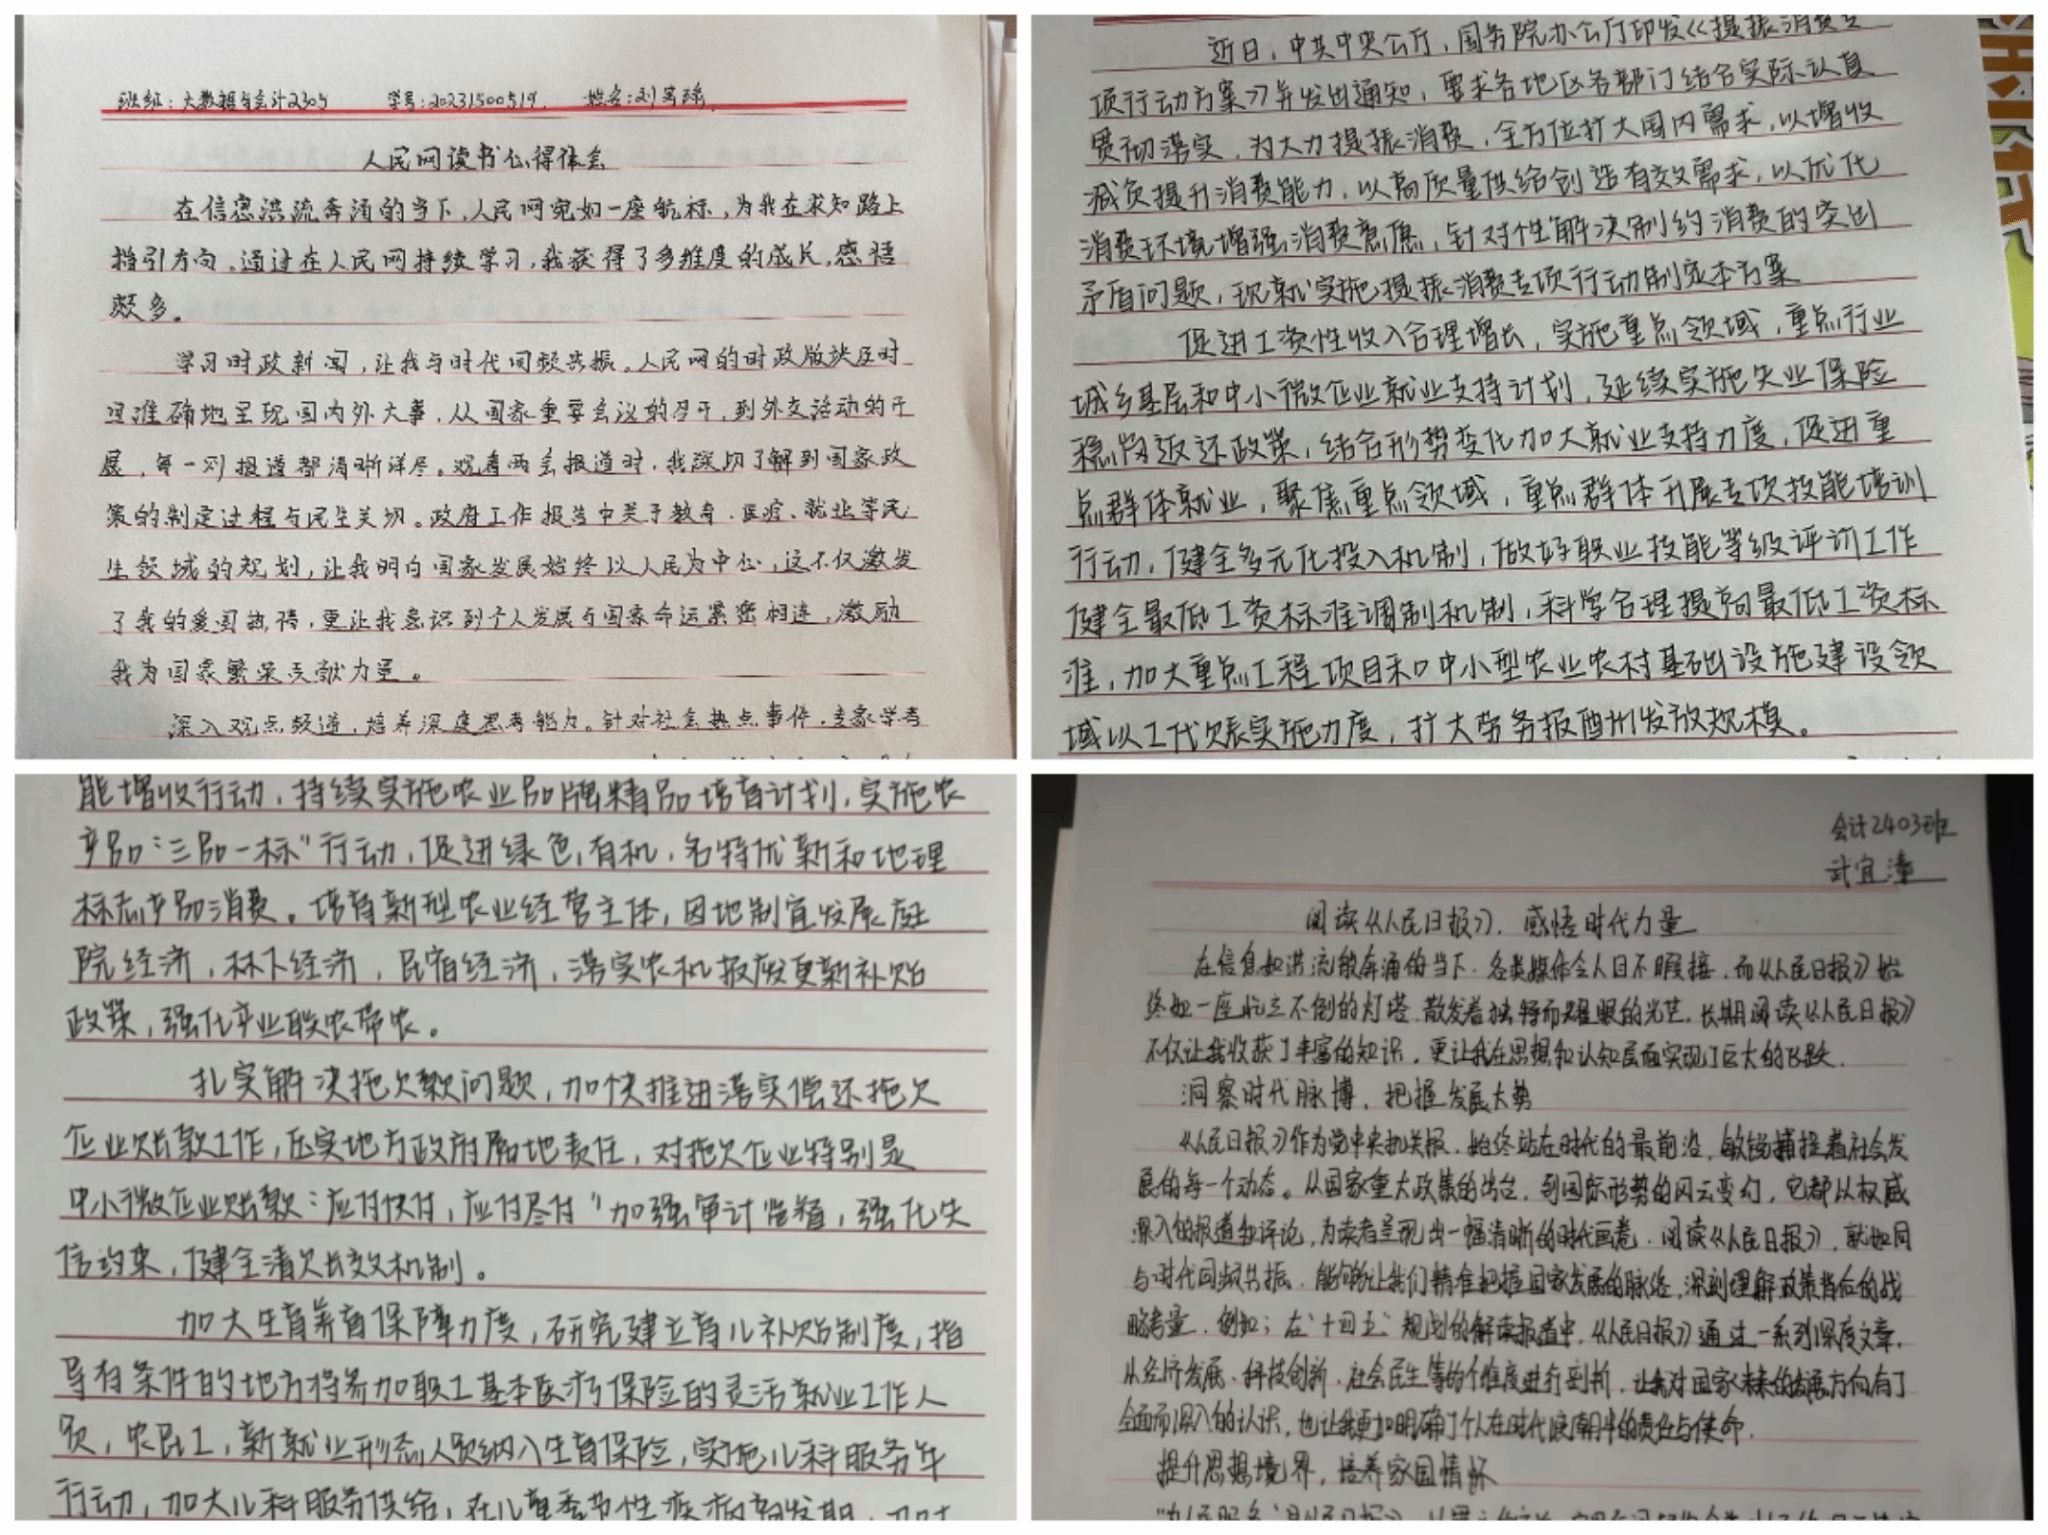 班级：大数据与会计2305 学号：20231500519. 姓名：刘
人民网读书心得体会
在信息洪流奔涌的当下，人民网宛如一座航标，为我在求知路上
指引方向。通过在人民网持续学习，我获得了多维度的成长，感悟
颇多。
学习时政新闻，让我与时代同频共振。人民网的时政版块及时
且准确地呈现国内外大事，从国家重要会议的召开，到外交活动的开
展，每一则报道都清晰详尽。观看两会报道时，我深切了解到国家政
策的制定过程与民生关切。政府工作报告中关于教育、医疗、就业等民
生领域的规划，让我明白国家发展始终以人民为中心，这不仅激发
了我的爱国热情，更让我意识到个人发展与国家命运紧密相连，激励
我为国家繁荣贡献力量。
深入观点频道，培养深度思考能力。针对社会热点事件，专家学者
近日，中共中央公厅，国务院办公厅印发《提振消费专
项行动方案》并发出通知，要求各地区各部门结合实际认真
贯彻落实，为大力提振消费，全方位扩大国内需求，以增收
减负提升消费能力，以高质量供给创造有效需求，以优化
消费环境增强消费意愿，针对性解决制约消费的突出
矛盾问题，现就实施提振消费专项行动制定本方案
促进工资性收入合理增长，实施重点领域，重点行业
城乡基层和中小微企业就业支持计划，延续实施失业保险
稳岗返还政策，结合形势变化加大就业支持力度，促进重
点群体就业，聚焦重点领域，重点群体开展专项技能培训
行动，健全多元化投入机制，做好职业技能等级评订工作
健全最低工资标准调制机制，科学合理提高最低工资标
准，加大重点工程项目和中小型农业农村基础设施建设领
域以工代赈实施力度，扩大劳务报酬发放规模。
能增收行动，持续实施农业品牌精品培育计划，实施农
产品“三品一标”行动，促进绿色，有机，名特优新和地理
标志产品消费。培育新型农业经营主体，因地制宜发展庭
院经济，林下经济，民宿经济，落实农机报废更新补贴
政策，强化产业联农带农。
扎实解决拖欠款问题，加快推进落实偿还拖欠
企业账款工作，压实地方政府属地责任，对拖欠企业特别是
中小微企业账款：应付快付，应付尽付“加强审计监督，强化失
信约束，健全清欠长效机制。
加大生育养育保障力度，研究建立育儿补贴制度，指
导有条件的地方将参加职工基本医疗保险的灵活就业工作人
员，农民工，新就业形态人员纳入生育保险，实施儿科服务年
行动，加大儿科服务供给，在儿童季节性疾病高发期
会计2403班
武宜潼
阅读《人民日报》，感悟时代力量
在信息如洪流般奔涌的当下，各类媒体令人目不暇接，而《人民日报》始
终如一座屹立不倒的灯塔，散发着独特而耀眼的光芒，长期阅读《人民日报》
不仅让我收获了丰富的知识，更让我在思想和认知层面实现了巨大的飞跃.
洞察时代脉博，把握发展大势
《人民日报》作为党中央机关报，始终站在时代的最前沿，敏锐捕捉着社会发
展的每一个动态。从国家重大政策的出台，到国际形势的风云变幻，它都以权威
深入的报道和评论，为读者呈现出一幅清晰的时代画卷，阅读《人民日报》，就如同
与时代同频共振，能够让我们精准把握国家发展的脉络，深刻理解政策背后的战
略考量，例如；在“十四五”规划的解读报道中，《人民日报》通过一系列深度文章，
从经济发展、科技创新，社会民生等多个维度进行剖析，让我对国家未来的发展方向有了
全面而深入的认识，也让我更加明确了个人在时代浪潮中的责任与使命.
提升思想境界，培养家国情怀